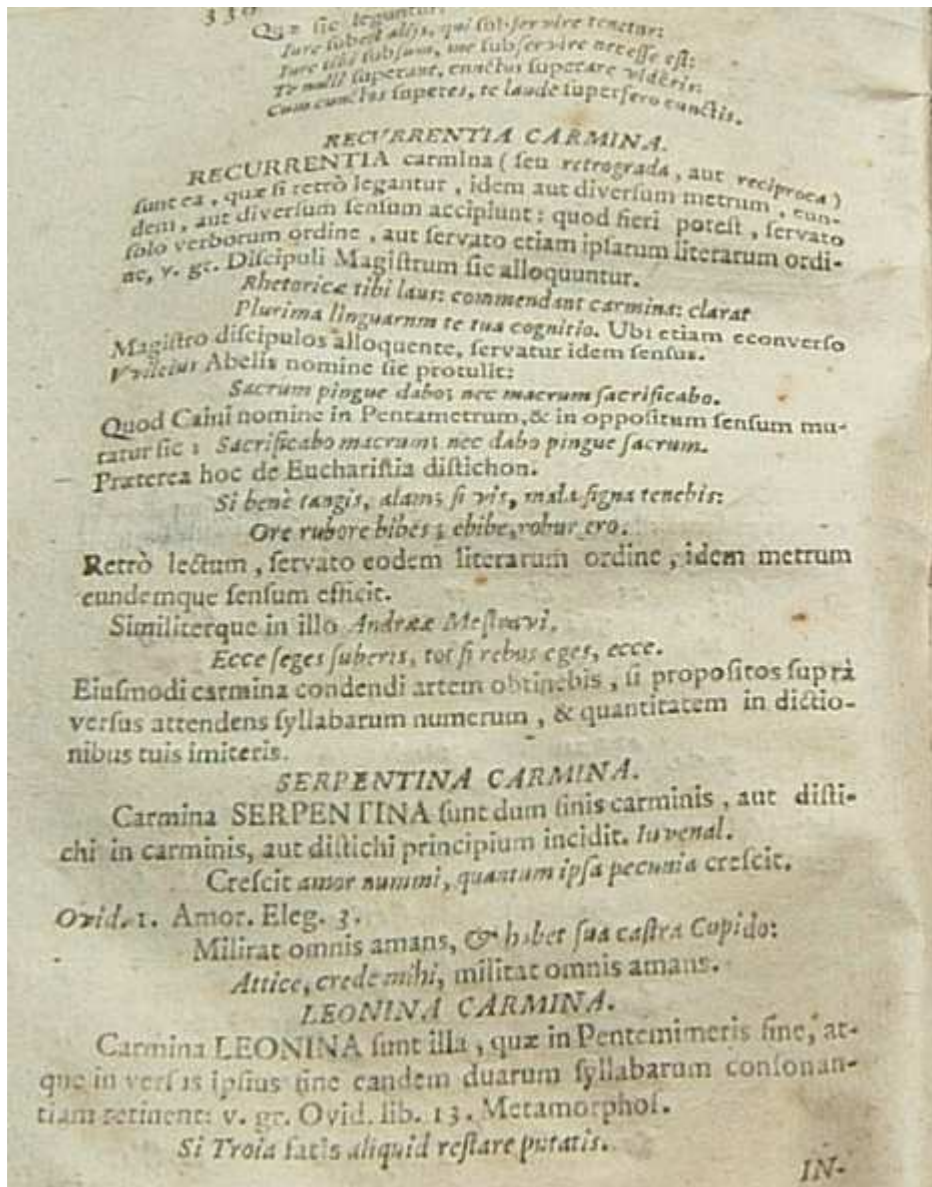 330
Quæ sic leguntur.
Iure subest alijs, qui subservire tenetur:
Iure tibi subsum, me subservire necesse est:
Te nulli superant, cunctos superare videris:
Cum cunctos superes, te laude superfero cunctis.
RECURRENTIA CARMINA.
RECURRENTIA carmina (seu retrograda, aut reciproca)
sunt ea, quæ si retrò legantur, idem aut diversum metrum, eun-
dem, aut diversum sensum accipiunt: quod fieri potest, servato
solo verborum ordine, aut servato etiam ipsarum literarum ordi-
ne, v. gr. Discipuli Magistrum sic alloquuntur.
Rhetoricæ tibi laus: commendant carmina: clarat
Plurima linguarum te tua cognitio. Ubi etiam econverso
Magistro discipulos alloquente, servatur idem sensus.
Abelis nomine sic protulit:
Sacrum pingue dabo; nec macrum sacrificabo.
Quod Caini nomine in Pentametrum, & in oppositum sensum mu-
tatur sic: Sacrificabo macrum; nec dabo pingue sacrum.
Præterea hoc de Eucharistia distichon.
Si benè tangis, alam; si vis, mala signa tenebis:
Ore rubore bibes; ebibe, robur ero.
Retrò lectum, servato eodem literarum ordine, idem metrum
eundemque sensum efficit.
Similiterque in illo Andreæ Mestravi.
Ecce seges suberis, tot si rebus eges, ecce.
Eiusmodi carmina condendi artem obtinebis, si propositos suprà
versus attendens syllabarum numerum, & quantitatem in dictio-
nibus tuis imiteris.
SERPENTINA CARMINA.
Carmina SERPENTINA sunt dum finis carminis, aut disti-
chi in carminis, aut distichi principium incidit. Iuvenal.
Crescit amor nummi, quantum ipsa pecunia crescit.
Ovid. 1. Amor. Eleg. 3.
Militat omnis amans, & habet sua castra Cupido:
Attice, crede mihi, militat omnis amans.
LEONINA CARMINA.
Carmina LEONINA sunt illa, quæ in Pentemimeris fine, at-
que in versus ipsius fine eandem duarum syllabarum consonan-
tiam retinent: v. gr. Ovid. lib. 13. Metamorphos.
Si Troia fatis aliquid restare putatis.
IN-